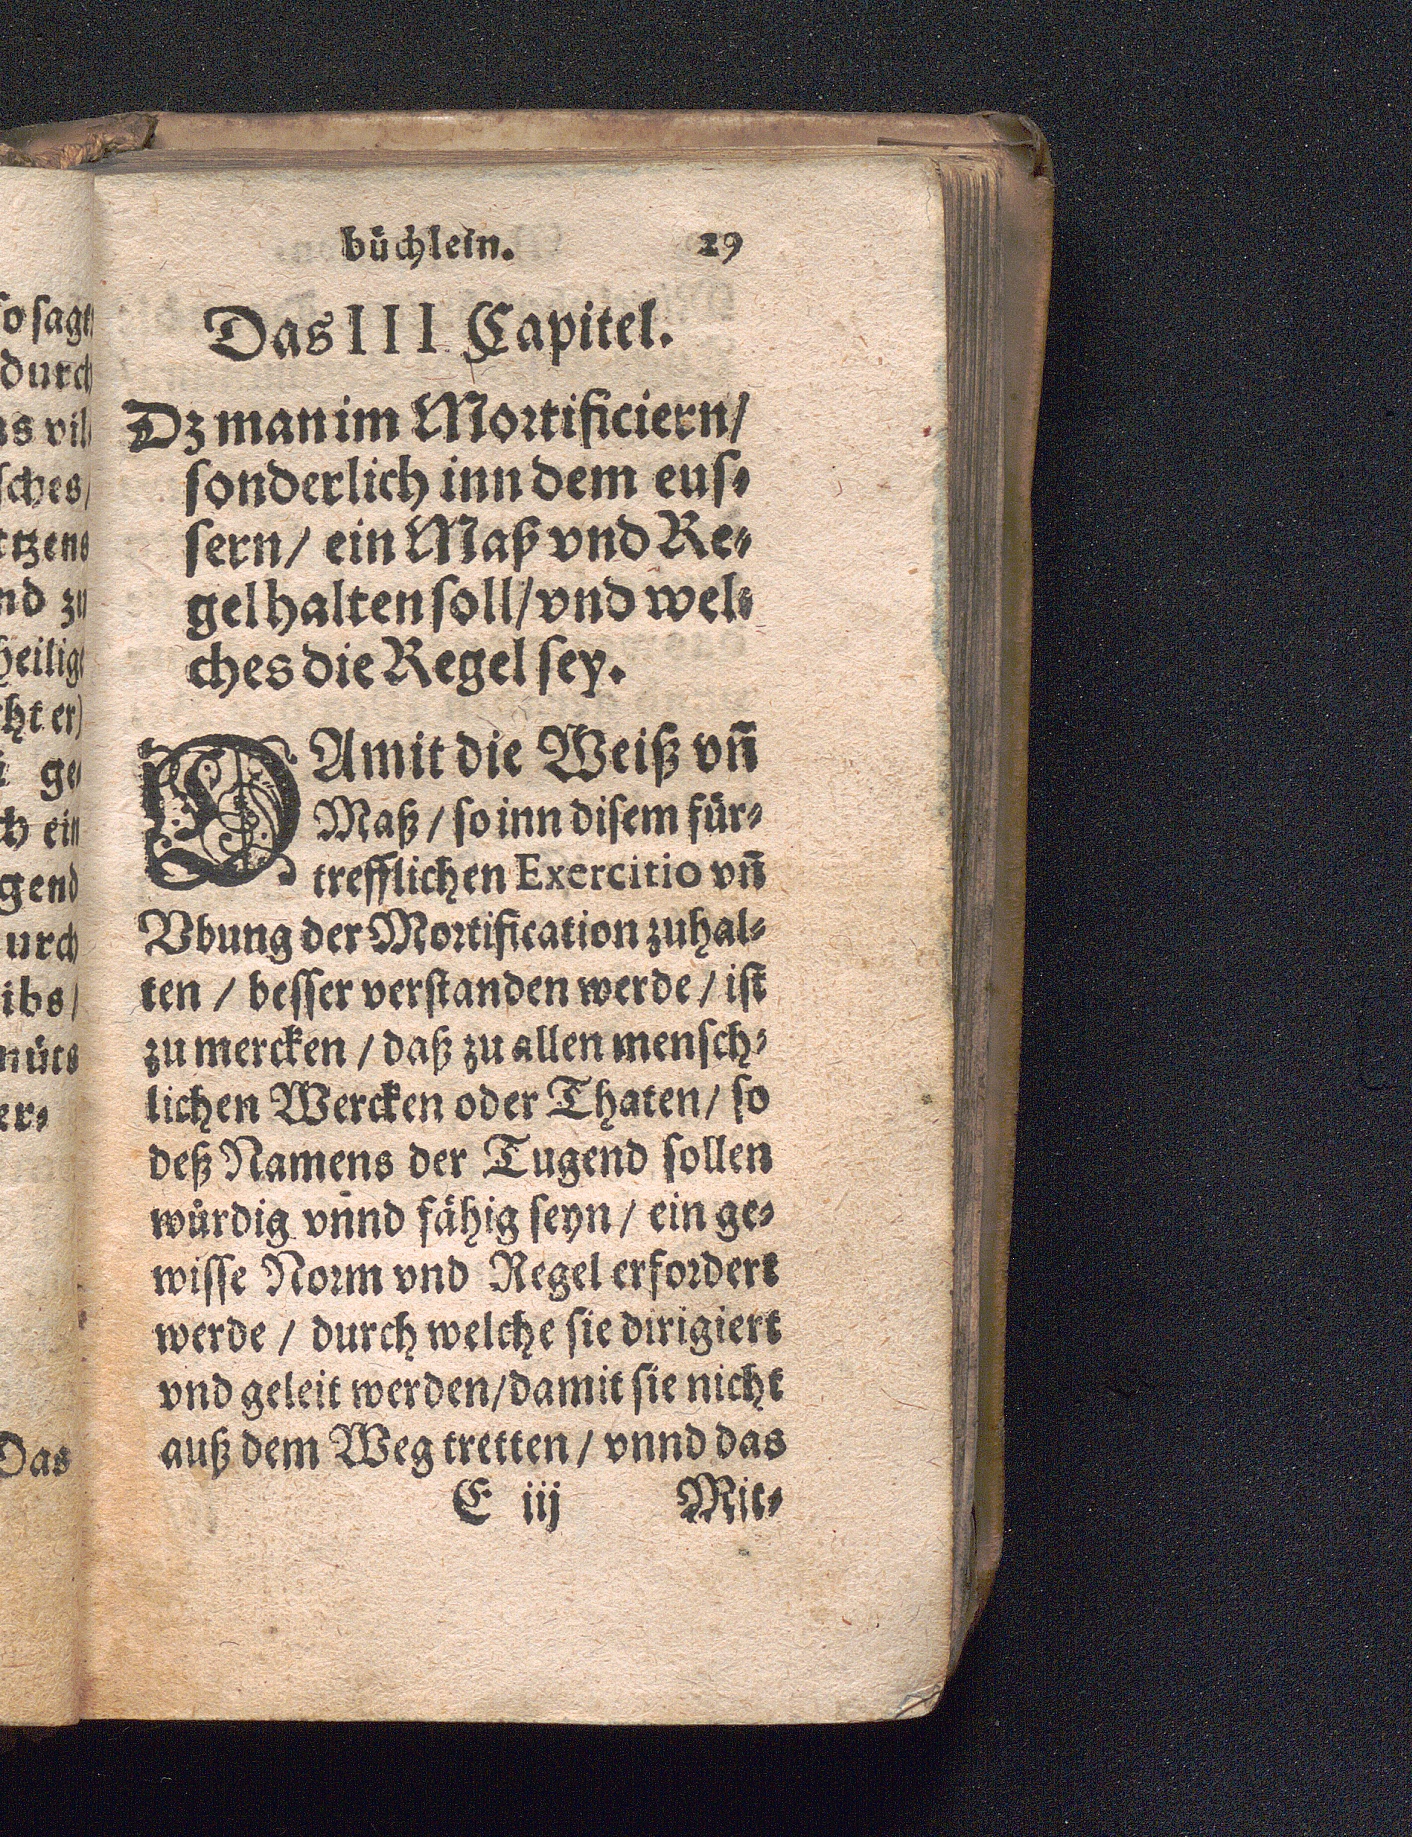 büchlein. 29
Das III Capitel.
Dz man im Mortificiern/
sonderlich inn dem eus-
sern/ ein Maß vnd Re-
gel halten soll/ vnd wel-
ches die Regel sey.
DAmit die Weiß vñ
Maß / so inn disem für-
trefflichen Exercitio vñ
Vbung der Mortification zuhal-
ten / besser verstanden werde / ist
zu mercken / daß zu allen mensch-
lichen Wercken oder Thaten / so
deß Namens der Tugend sollen
würdig vnnd fähig seyn / ein ge-
wisse Norm vnd Regel erfordert
werde / durch welche sie dirigiert
vnd geleit werden/ damit sie nicht
auß dem Weg tretten / vnnd das
E iij Mit-
so sagt
durch
vil
sches/
nd zu
heilig
ch ein
gend
urch
ibs/
er-
Das